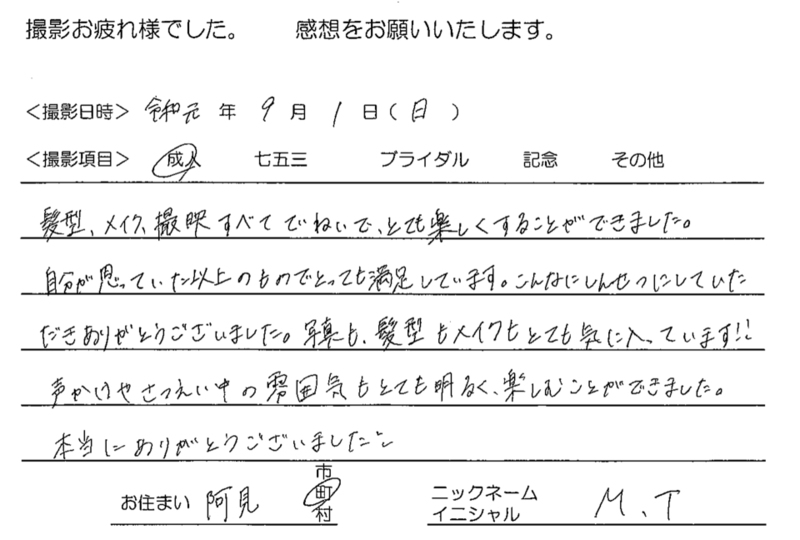 撮影お疲れ様でした。 感想をお願いいたします。
＜撮影日時＞ 令和元 年 9 月 1 日（日）
＜撮影項目＞ 成人 七五三 ブライダル 記念 その他
髪型、メイク、撮映すべてていねいで、とても楽しくすることができました。
自分が思っていた以上のものでとっても満足しています。こんなにしんせつにしていた
だきありがとうございました。写真も、髪型もメイクもとても気に入っています!!
声かけやさつえい中の雰囲気もとても明るく、楽しむことができました。
本当にありがとうございました
お住まい 阿見 市 町 村
ニックネーム イニシャル M.T